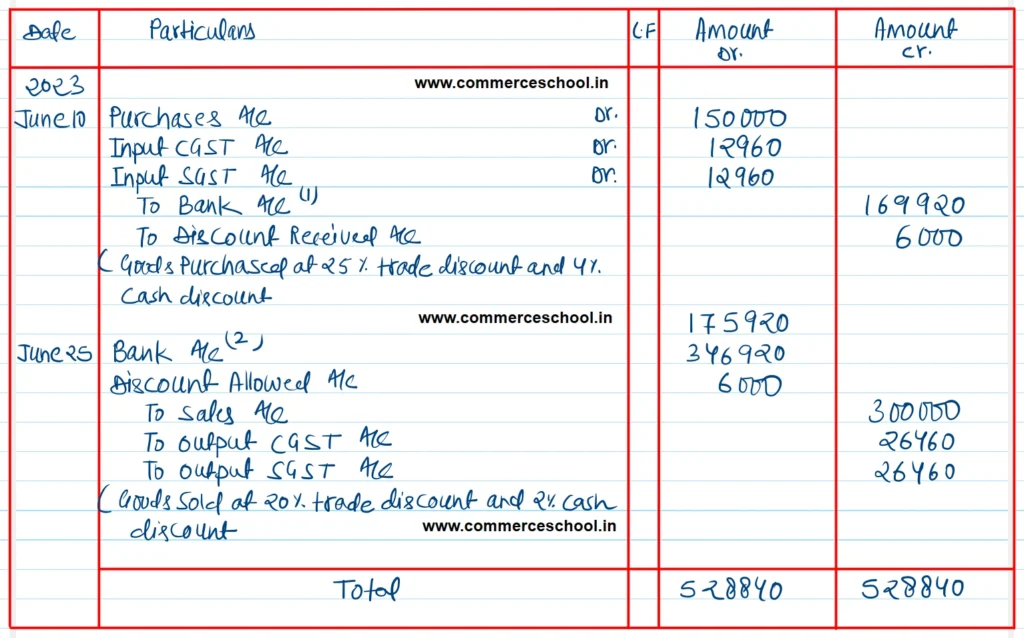 Date Particulars L.F Amount Dr. Amount Cr.
2023 www.commerceschool.in
June 10 Purchases A/c Dr. 150000
Input CGST A/c Dr. 12960
Input SGST A/c Dr. 12960
To Bank A/c (1) 169920
To Discount Received A/c 6000
(Goods Purchased at 25% trade discount and 4%
Cash discount
www.commerceschool.in 175920
June 25 Bank A/c (2) 346920
Discount Allowed A/c 6000
To Sales A/c 300000
To output CGST A/c 26460
To output SGST A/c 26460
(Goods Sold at 20% trade discount and 2% cash
discount www.commerceschool.in
Total 528840 528840